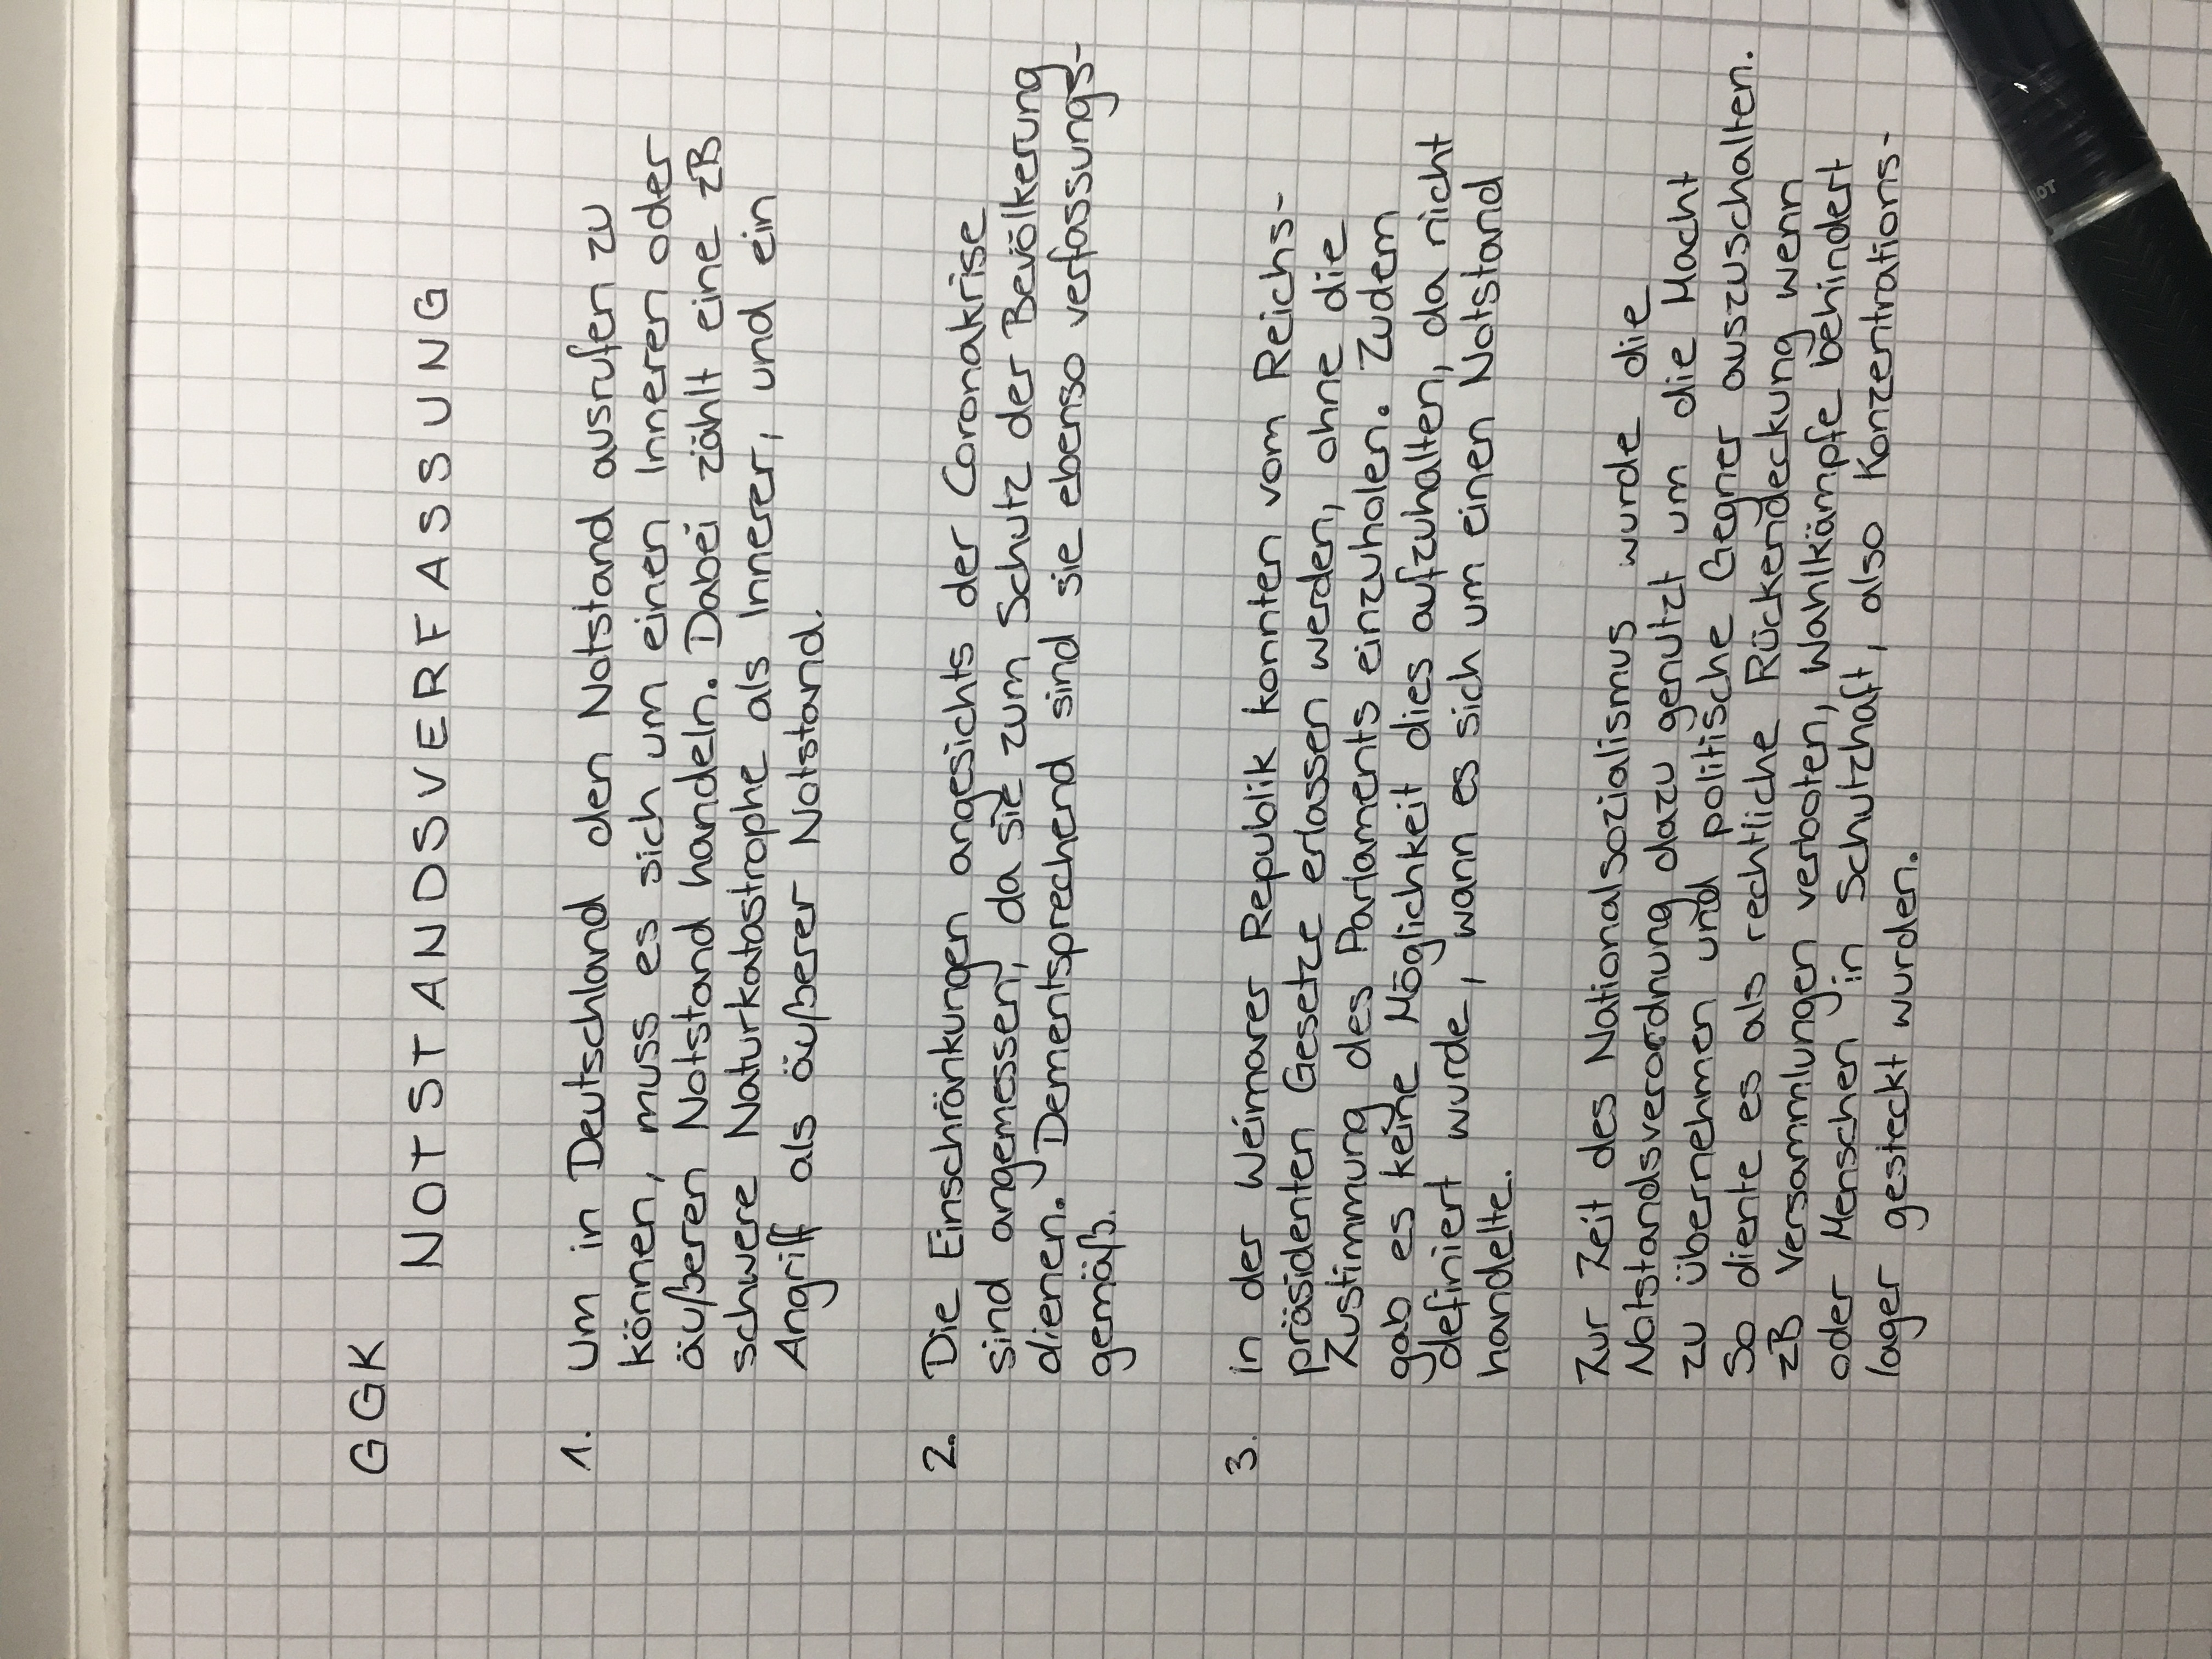 GGK
NOTSTANDSVERFASSUNG
1. Um in Deutschland den Notstand ausrufen zu
können, muss es sich um einen Inneren oder
äußeren Notstand handeln. Dabei zählt eine zB
schwere Naturkatastrophe als Innerer, und ein
Angriff als äußerer Notstand.
2. Die Einschränkungen angesichts der Coronakrise
sind angemessen, da sie zum Schutz der Bevölkerung
dienen. Dementsprechend sind sie ebenso verfassungs-
gemäß.
3. In der Weimarer Republik konnten vom Reichs-
präsidenten Gesetze erlassen werden, ohne die
Zustimmung des Parlaments einzuholen. Zudem
gab es keine Möglichkeit dies aufzuhalten, da nicht
definiert wurde, wann es sich um einen Notstand
handelte.
Zur Zeit des Nationalsozialismus wurde die
Notstandsverordnung dazu genutzt um die Macht
zu übernehmen und politische Gegner auszuschalten.
So diente es als rechtliche Rückendeckung wenn
zB Versammlungen verboten, Wahlkämpfe behindert
oder Menschen in Schutzhaft, also Konzentrations-
lager gesteckt wurden.